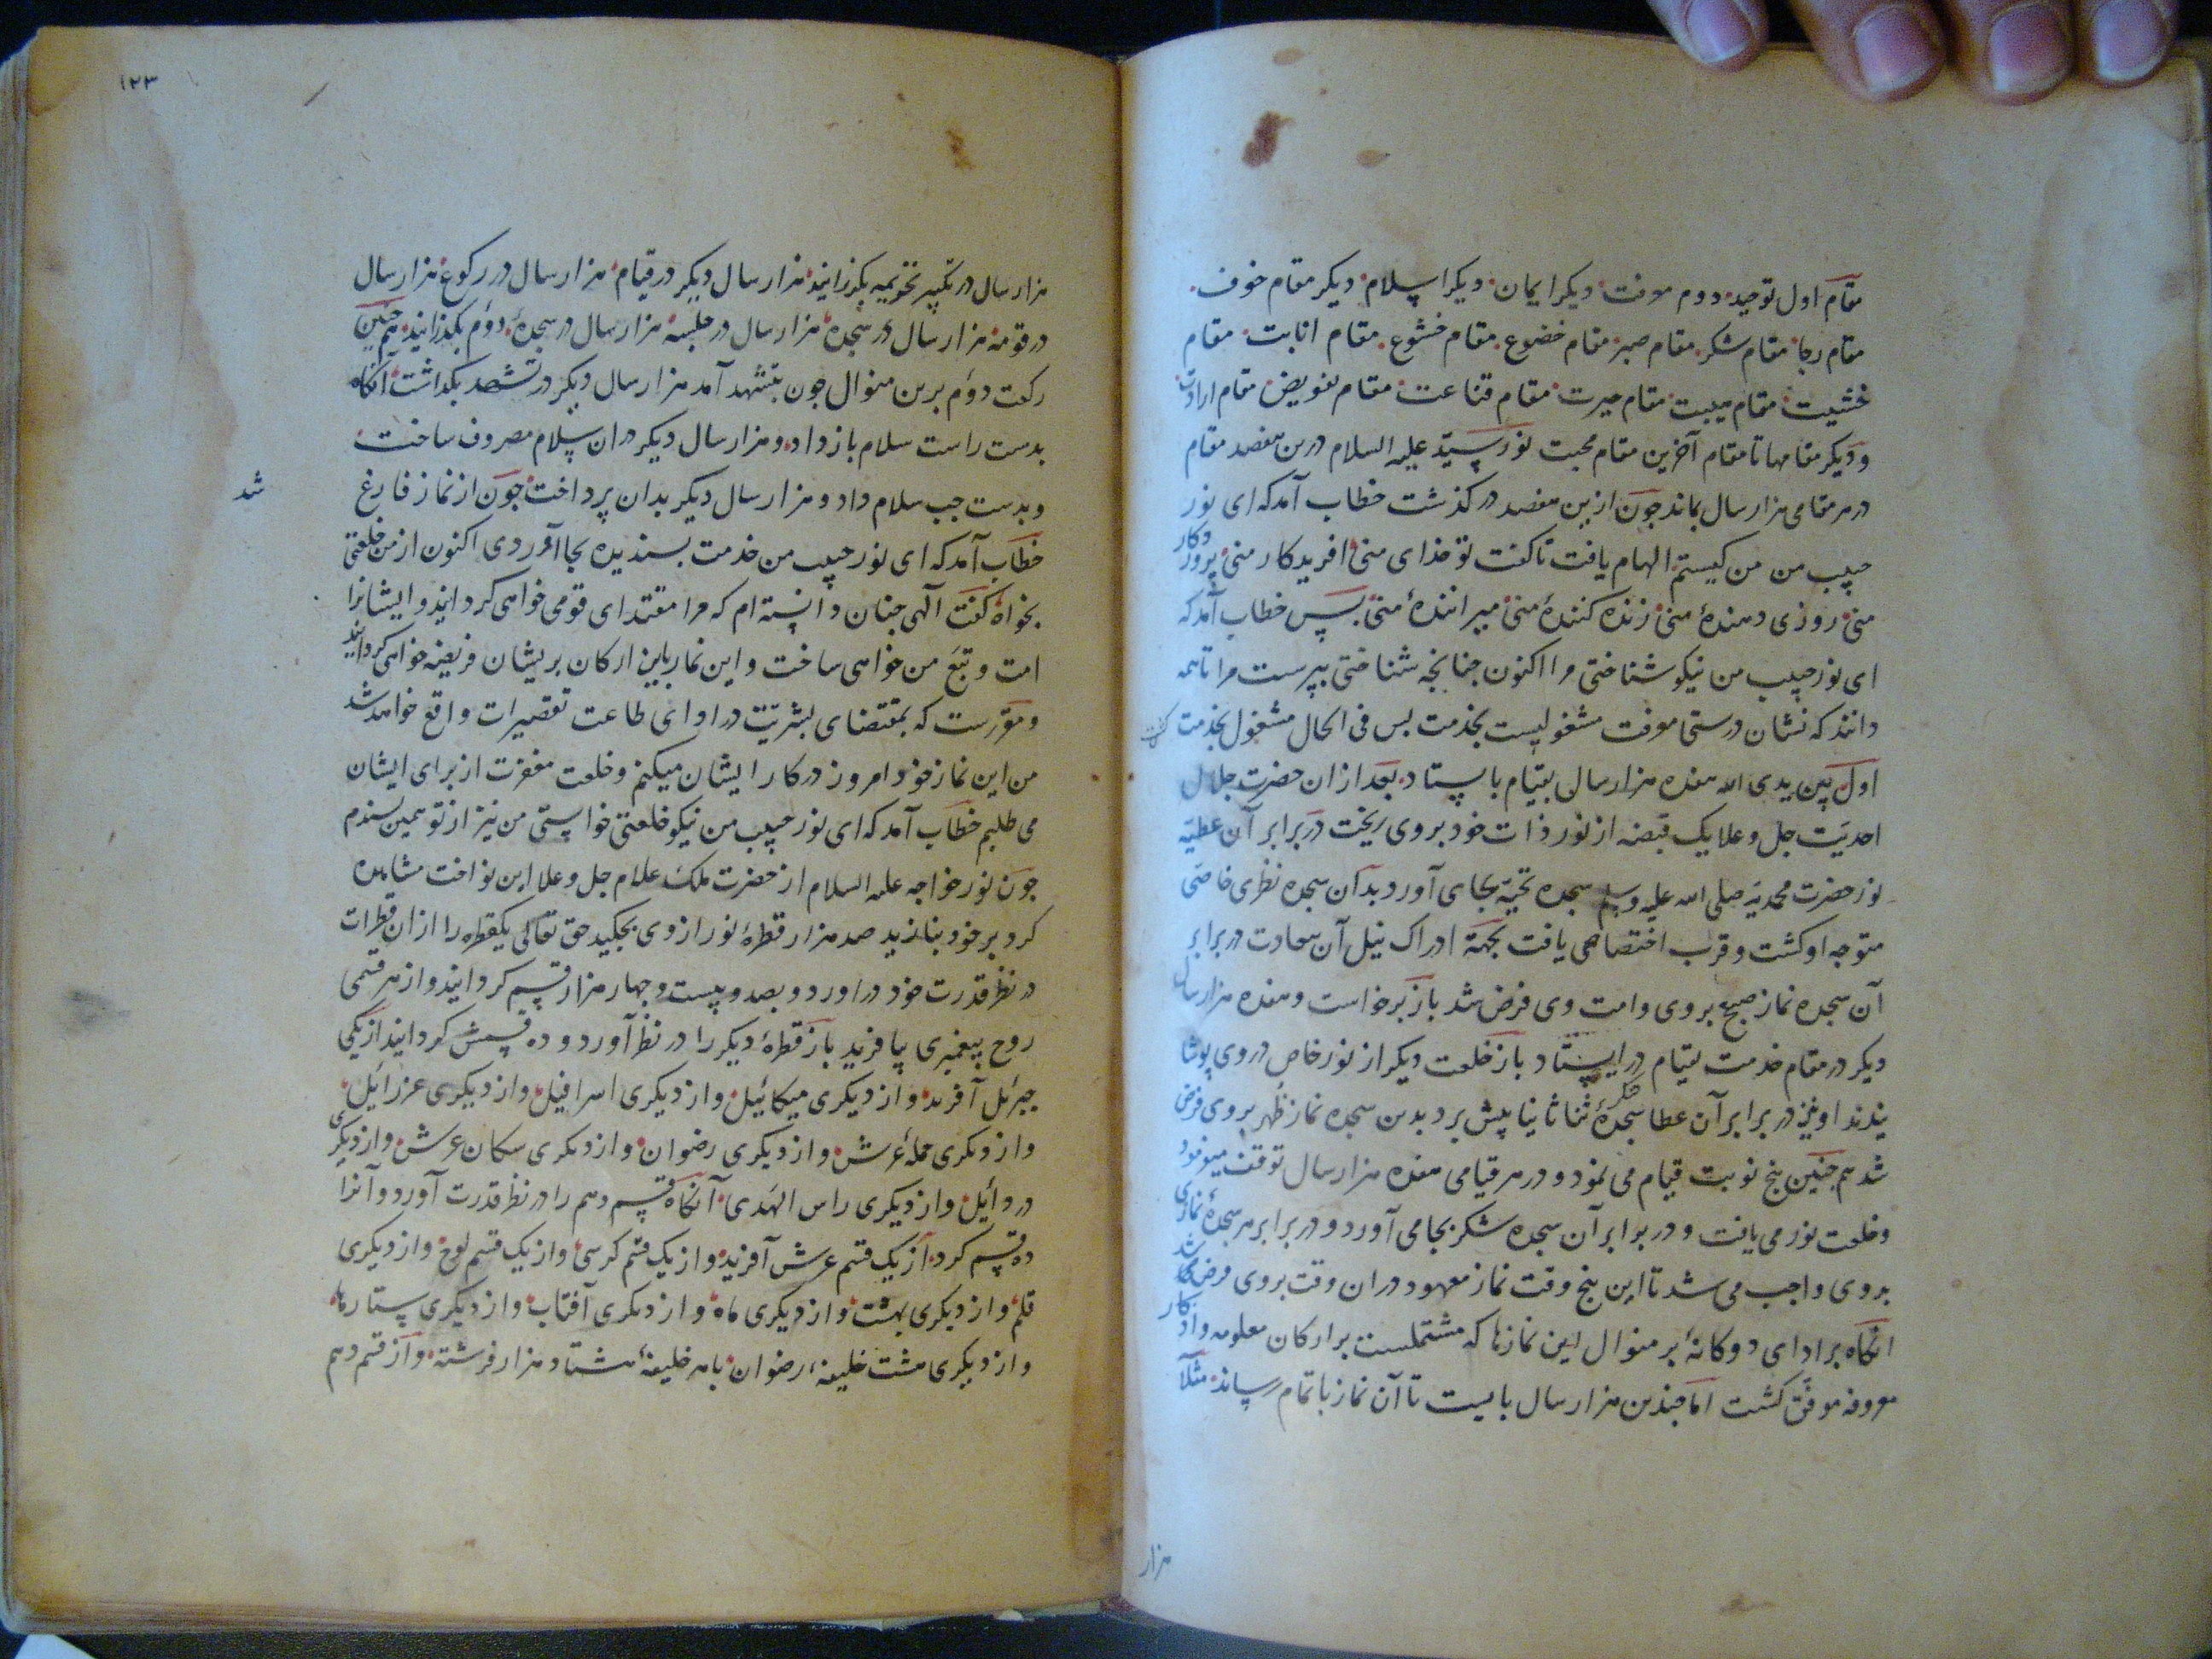 مقام اول توحید دوم معرفت دیکر ایمان دیکر اسلام دیکر مقام خوف
مقام رجا مقام شکر مقام صبر مقام خضوع مقام خشوع مقام انابت مقام
خشیت مقام هیبت مقام حیرت مقام قناعت مقام تفویض مقام ارادت
و دیکر مقامها تا مقام آخرین مقام محبت نور سید علیه السلام درین هفصد مقام
در هر مقامی هزار سال بماند جون ازین هفصد در کذشت خطاب آمد که ای نور
حبیب من من کیستم الهام یافت تا کفت تو خدای منی افریدکار منی پروردکار
منی روزی دهندهٔ منی زنده کنندهٔ منی میرانندهٔ منی پس خطاب آمد که
ای نور حبیب من نیکو شناختی مرا اکنون جنانجه شناختی بپرست مرا تا همه
دانند که نشان درستی معرفت مشغولیست بخدمت پس فی الحال مشغول بخدمت کشت
اول بین یدی الله هفده هزار سال بقیام بایستاد بعد ازان حضرت جلال
احدیت جل و علا یک قبضه از نور ذات خود بروی ریخت در برابر آن عطیه
نور حضرت محمدیه صلی الله علیه وسلم سجده تحیة بجای آورد بدان سجده نظری خاصی
متوجه او کشت و قرب اختصاصی یافت بجهة ادراک نیل آن سعادت در برابر
آن سجده نماز صبح بروی و امت وی فرض شد باز برخواست و هفده هزار سال
دیکر در مقام خدمت بقیام در ایستاد باز خلعت دیکر از نور خاص در وی پوشا
نیدند او نیز در برابر آن عطا سجدهٔ شکر ثنا ثانیا پیش برد بدین سجده نماز ظهر بروی فرض
شد هم جنین پنج نوبت قیام می نمود و در هر قیامی هفده هزار سال توقف میفرمود
و خلعت نور می یافت و در برابر آن سجده شکر بجا می آورد و در برابر هر سجدهٔ نمازی
بروی واجب می شد تا این پنج وقت نماز معهود دران وقت بروی فرض شد
انکاه بر ادای دوکانهٔ بر منوال این نمازها که مشتملست بر ارکان معلومه و اذکار
معروفه موفق کشت اما جندین هزار سال بایست تا آن نماز باتمام رساند مثلا
هزار
١٢٣
هزار سال در تکبیر تحریمه بکذرانید هزار سال دیکر در قیام هزار سال در رکوع هزار سال
در قومه هزار سال در سجده هزار سال در جلسه هزار سال در سجدهٔ دوم بکذرانید هم جنین
رکعت دوم برین منوال جون بتشهد آمد هزار سال دیکر در تشهد بکذاشت آنکاه
بدست راست سلام باز داد و هزار سال دیکر دران سلام مصروف ساخت
و بدست جب سلام داد و هزار سال دیکر بدان پرداخت جون از نماز فارغ شد
خطاب آمد که ای نور حبیب من خدمت پسندیده بجا آوردی اکنون از من خلعتی
بخواه کفت آلهی جنان دانسته ام که مرا مقتدای قومی خواهی کردانید و ایشانرا
امت و تبع من خواهی ساخت و این نماز باین ارکان بریشان فریضه خواهی کردانید
و مقررست که بمقتضای بشریت در ادای طاعت تقصیرات واقع خواهد شد
من این نماز خود امروز در کار ایشان میکنم و خلعت مغفرت از برای ایشان
می طلبم خطاب آمد که ای نور حبیب من نیکو خلعتی خواستی من نیز از تو همین پسندم
جون نور خواجه علیه السلام از حضرت ملک علام جل و علا این نواخت مشاهده
کرد بر خود بنازید صد هزار قطرهٔ نور از وی بجکید حق تعالی یکقطره را ازان قطرات
در نظر قدرت خود در اورد و بصد و بیست و جهار هزار قسم کردانید و از هر قسمی
روح پیغمبری بیافرید باز قطرهٔ دیکر را در نظر آورد و ده قسمش کردانید از یکی
جبرئل آفرید و از دیکری میکائیل و از دیکری اسرافیل و از دیکری عزرائیل
و از دیکری حملهٔ عرش و از دیکری رضوان و از دیکری سکان عرش و از دیکری
دردائیل و از دیکری راس الهدی آنکاه قسم دهم را در نظر قدرت آورد و آنرا
ده قسم کرد از یک قسم عرش آفرید و از یک قسم کرسی و از یک قسم لوح و از دیکری
قلم و از دیکری بهشت و از دیکری ماه و از دیکری آفتاب و از دیکری ستارها
و از دیکری هشت خلیفهٔ رضوان با هر خلیفهٔ هشتاد هزار فرشته و از قسم دهم